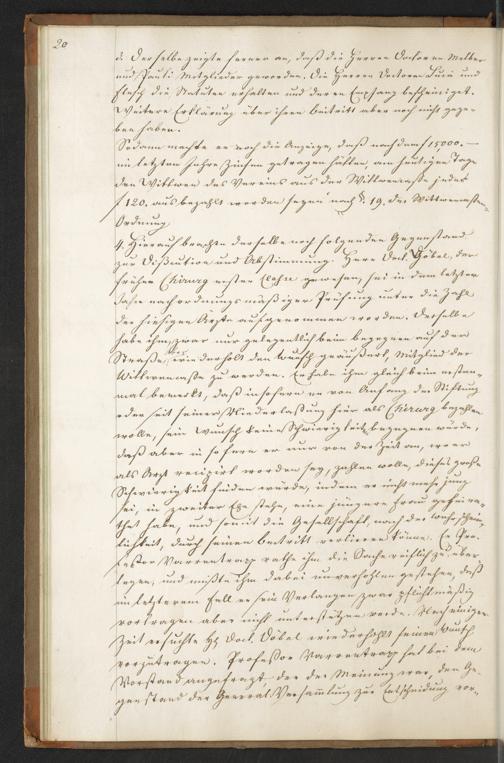 20
d. Derselbe zeigte ferner an, daß die Herren Doctoren Melber
und Pauli Mitglieder geworden. Die Herren Doctoren und
die Statuten erhalten und deren Empfang bescheiniget.
Weitere Erklärung über ihren Beitritt aber noch nicht gege-
ben haben.
Sodann machte er noch die Anzeige, daß nachdem f 15000.—
im letzten Jahre Zinsen getragen hätten am heutigen Tage
den Wittwen des Vereins aus der Wittwenkasse jeder
f 120. ausbezahlt worden seyen nach §. 19. der Wittwenkassen-
Ordnung
4. Hierauf brachte derselbe noch folgenden Gegenstand
zur Discution und Abstimmung. Herr Doct. Döbel, der
früher Chirurg erster Classe gewesen, sei in dem letzten
Jahre nach ordnungsmäßiger Prüfung unter die Zahl
der hiesigen Ärzte aufgenommen worden. Derselbe
habe ihm, zwar nur gelegentlich beim begegnen auf der
Straße, wiederholt den Wunsch geäußert, Mitglied der
Wittwenkasse zu werden. Er habe ihm gleich beim ersten-
mal bemerkt, daß insofern er von Anfang der Stiftung
oder seit seiner Niederlassung hier als Chirurg bezahlen
wolle, sein Wunsch keine Schwierigkeit begegnen würde,
daß aber in so ferne er nur von der Zeit an, wo er
als Arzt recipirt worden sey, zahlen wolle, dieses große
Schwierigkeit finden würde, indem er nicht mehr jung
sei, in zweiter Ehe stehe, eine jüngere Frau geheira-
thet habe, und somit die Gesellschaft, nach der wahrschein-
lichkeit, durch seinen Beitritt verlieren könne. Er Pro-
fessor Varrentrapp rathe ihm die Sache reiflich zu über-
legen, und müßte ihm dabei unverhohlen gestehen, daß
im letzteren Fall er sein Verlangen zwar pflichtmäßig
vortragen aber nicht unterstützen werde. Nach einiger
Zeit ersuchte H. Doct. Döbel wiederholt seinen Wunsch
vorzutragen. Professor Varrentrapp hat bei dem
Vorstand angefragt der der Meinung war, den Ge-
genstand der General-Versammlung zur Entscheidung vor-